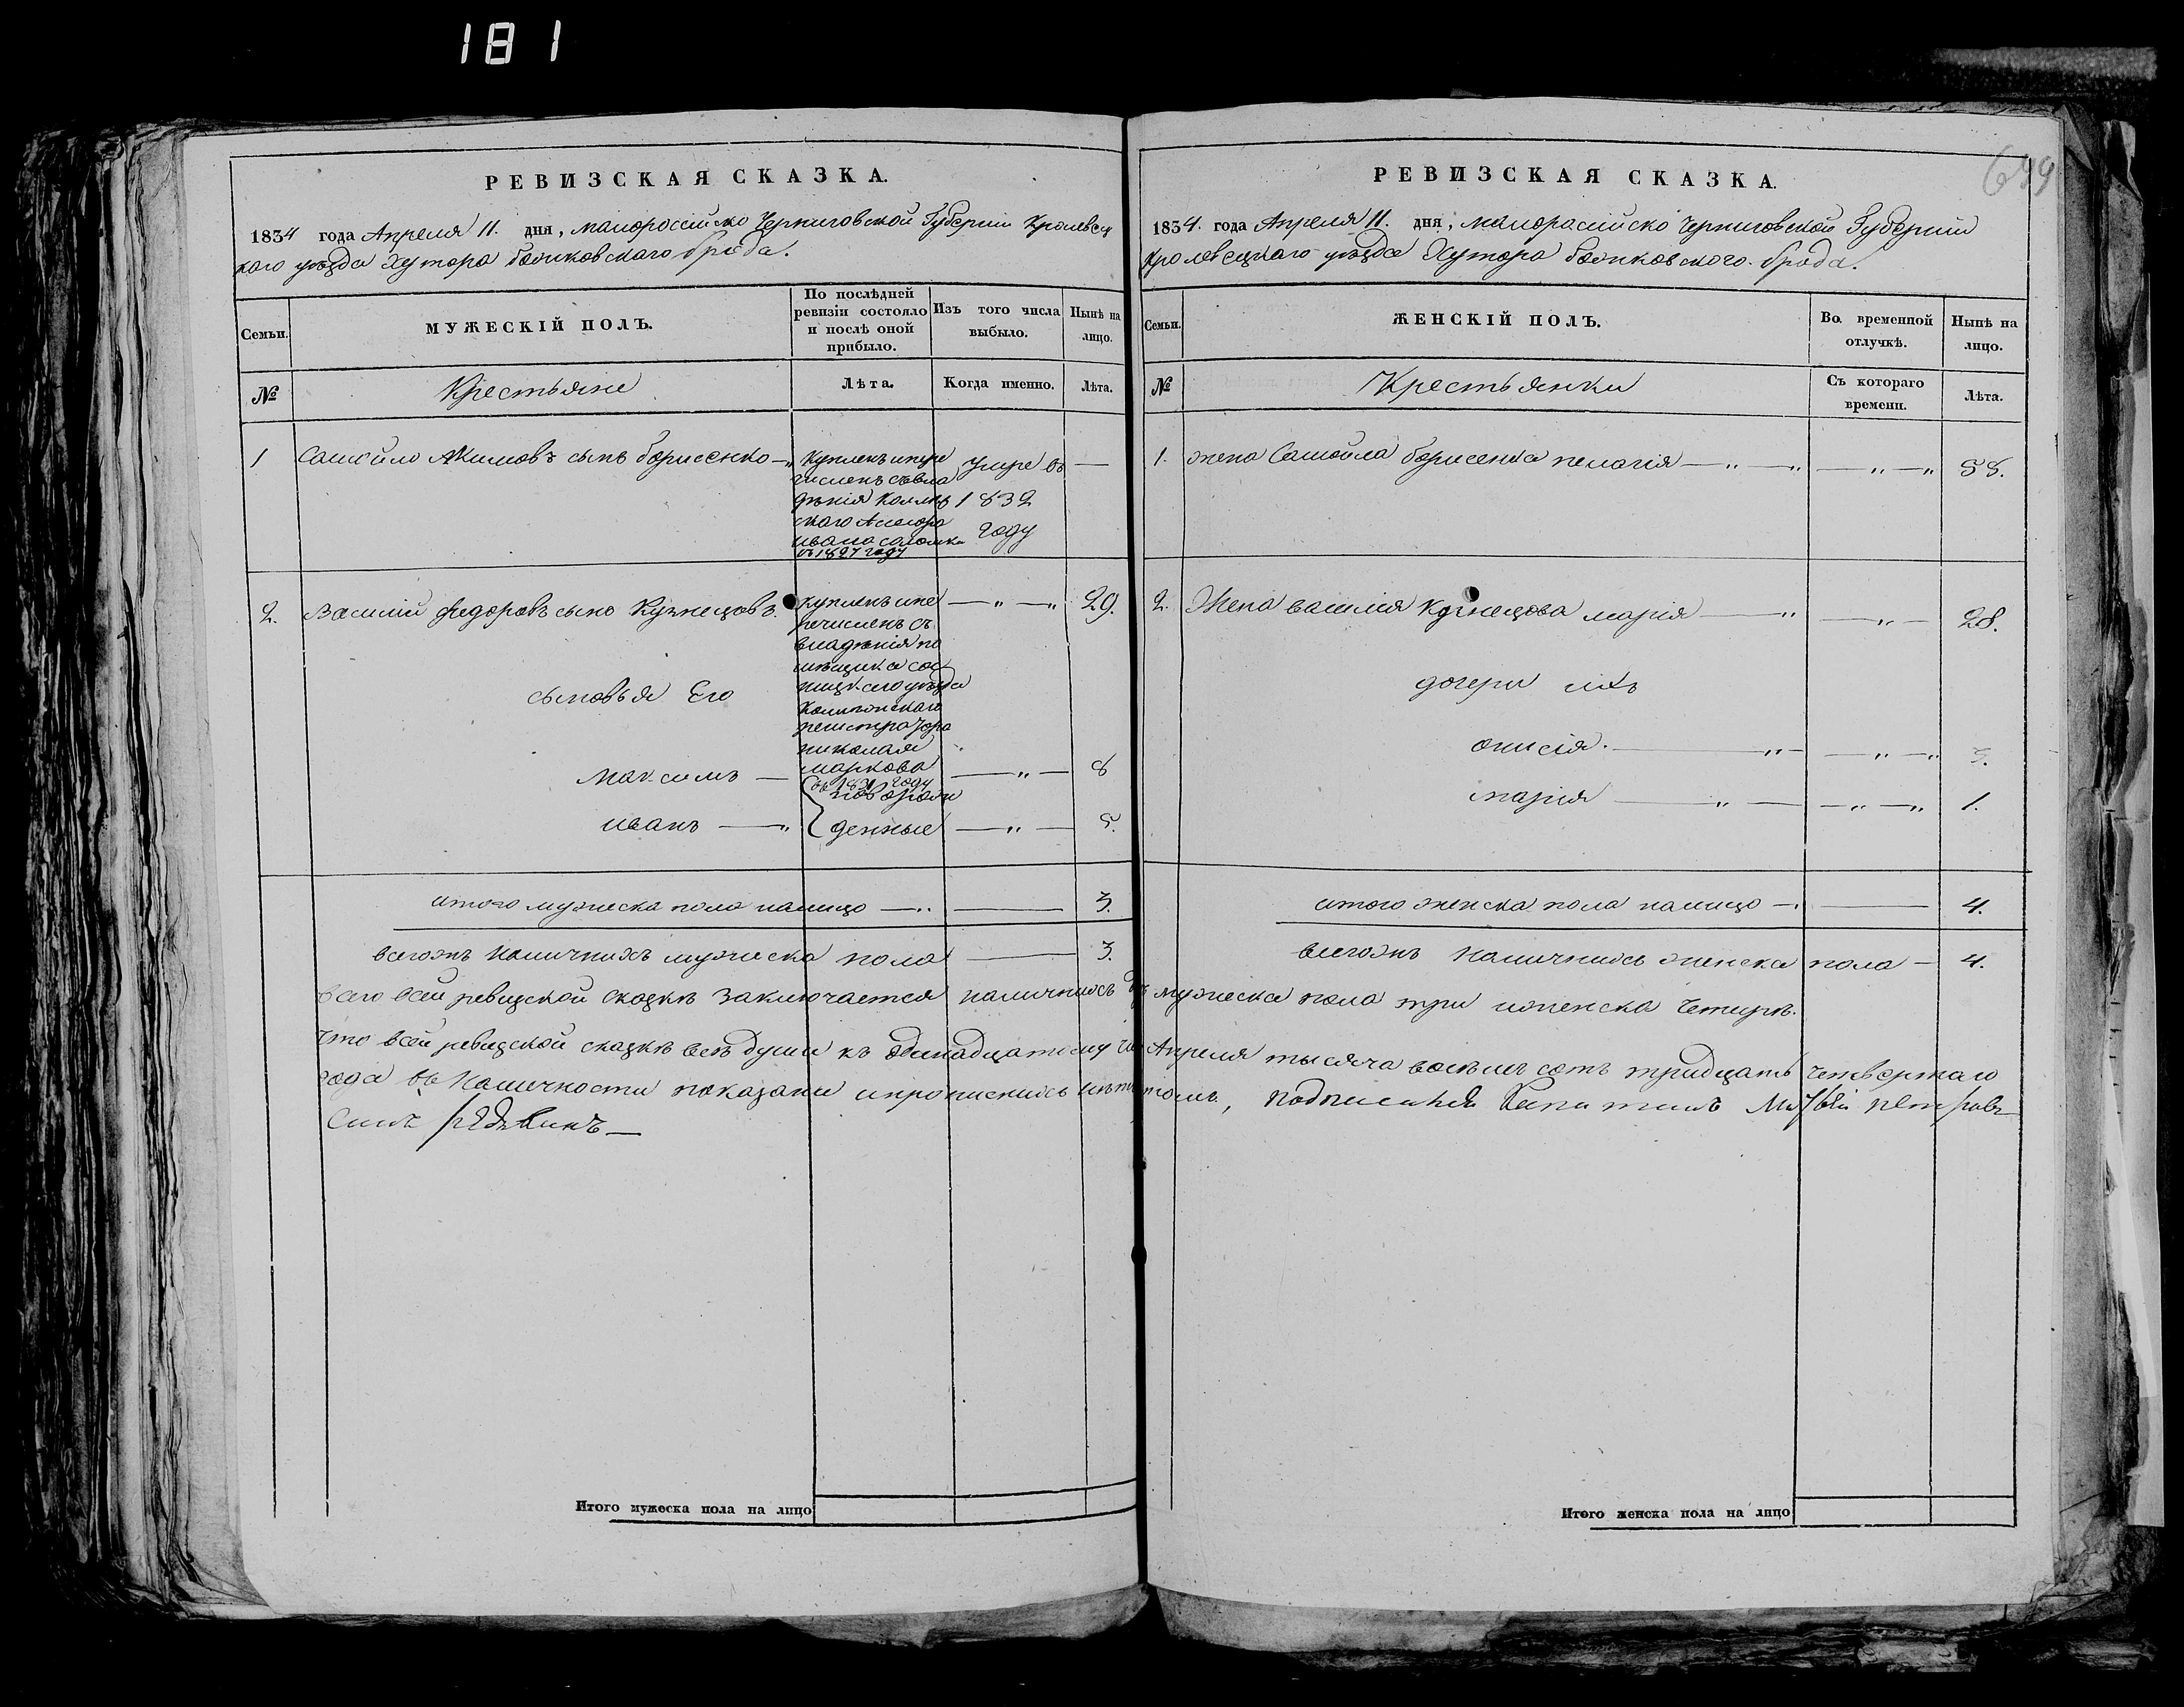 181
РЕВИЗСКАЯ СКАЗКА.
1834 года Апреля 11. дня, малоросеійско Черниговской Губерніи Кролевец
кого уезда Хутора бочиковского брода.
Семьи.
МУЖЕСКІЙ ПОЛЪ.
По послѣдней ревизіи состояло и послѣ оной прибыло.
Изъ того числа выбыло.
Нынѣ на лицо.
№
Крестьяне
Лѣта.
Когда именно.
Лѣта.
1 Самойло Акимовъ сынъ борисенко
Купленъ ипере
численъ свла
дѣнія Коллеж
ского Асесора
ивана соломки
въ 1827 году
Умре въ
1832
году
2. Василій Федоровъ сынъ Кузнецовъ.
купленъ ипе
речисленъ съ
владѣнія по
мещика сос
ницкаго уезда
Колигскаго
регистратора
николая
маркова
въ 1831 году
29.
сыновья Его
максимъ
8
иванъ
новорож
денные
5.
итого мужеска пола налицо 3.
всегожъ наличнихъ мужеска пола 3.
РЕВИЗСКАЯ СКАЗКА.
699
1834. года Апреля 11. дня, малоросийско Черниговской Губерніи
Кролевецкаго уезда Хутора бочиковского брода.
Семьи.
ЖЕНСКІЙ ПОЛЪ.
Во временной отлучкѣ.
Нынѣ на лицо.
№
Крестьянки
Съ котораго времени.
Лѣта.
1. жена Самойла борисенка пелагія 58.
2. Жена василия Кузнецова марія 28.
дочери ихъ
онисія. 3.
марія 1.
итого женска пола налицо 4.
всегожъ наличнихъ женска пола 4.
всего всей ревизской сказкѣ заключается наличнихъ мужеска пола три иженска четыре.
Что всей ревизской сказкѣ всѣ души къ одинадцатому Апреля тысяча восемъ сотъ тридцать четвертаго
года въ наличности показани ипрописнихъ нѣтъ втомъ, подписался Капитанъ Матвей петровъ
Синъ редькинъ
Итого мужеска пола на лицо
Итого женска пола на лицо